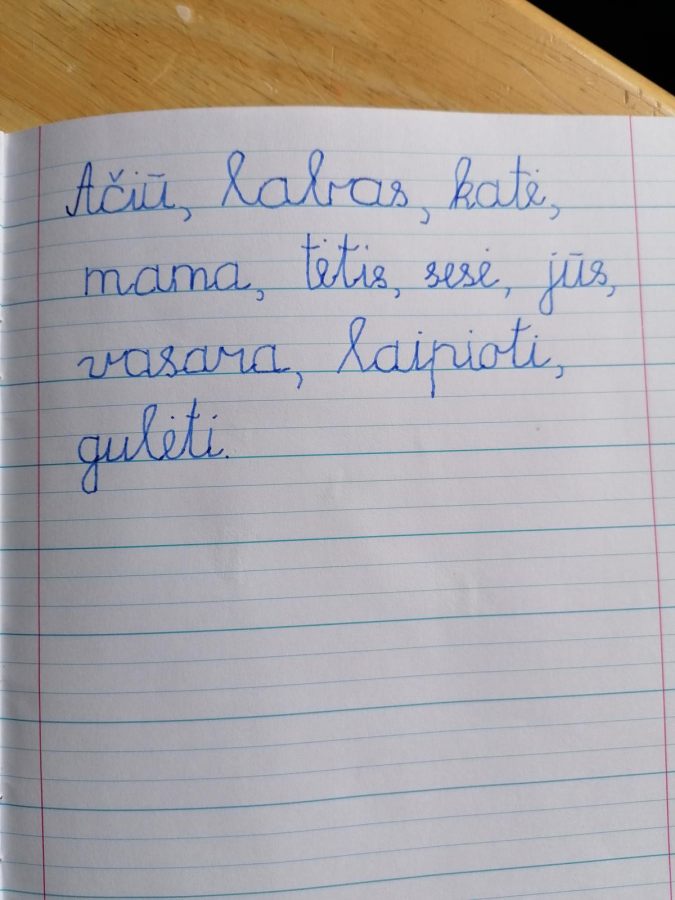 Ačiū, labas, katė,
mama, tėtis, sesė, jūs,
vasara, laipioti,
gulėti.